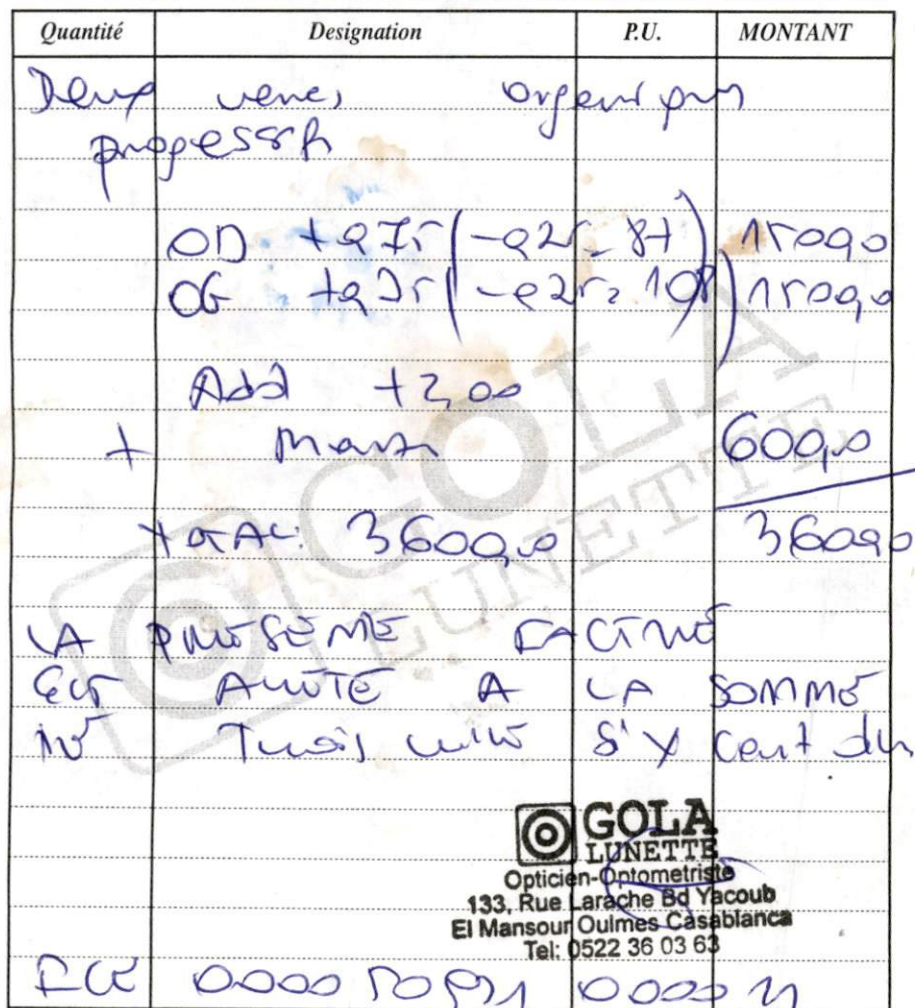 Quantité Designation P.U. MONTANT
Deux verres organiques
progressifs
OD +0,75 (-0,25 87) 1500,0
OG +0,75 (-0,25 108) 1500,0
Add +2,00
+ 600,0
TOTAL: 3600,0 3600,0
LA PRESENTE FACTURE
EST ARRETE A LA SOMME
DE Trois mille SIX Cent dh
GOLA
LUNETTE
GOLA
LUNETTE
Opticien-Optometriste
133, Rue Larache Bd Yacoub
El Mansour Oulmes Casablanca
Tel: 0522 36 03 63